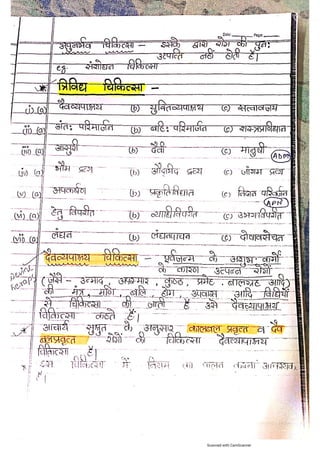 Date ______ Page ______
अपुनर्भव चिकित्सा - इसके द्वारा रोग की पुनः
उत्पत्ति नहीं होती है।
eg संशोधन चिकित्सा
त्रिविध चिकित्सा -
i) (a) दैवव्यपाश्रय (b) युक्तिव्यपाश्रय (c) सत्वावजय
ii) (a) अंतः परिमार्जन (b) बहिः परिमार्जन (c) शस्त्रप्रणिधान
iii) (a) आसुरी (b) दैवी (c) मानुषी
ADM
iv) (a) भौम द्रव्य (b) औद्भीद द्रव्य (c) जांगम द्रव्य
v) (a) अपकर्षण (b) प्रकृतिविघात (c) निदान परिवर्जन
APN
vi) (a) हेतु विपरीत (b) व्याधिविपरीत (c) उभयविपरीत
vii) (a) लंघन (b) लंघनपाचन (c) दोषावसेचन
दैवव्यपाश्रय चिकित्सा - पूर्वजन्म के अशुभ कर्मो
के कारण उत्पन्न रोगों
(जैसे - उन्माद, अपस्मार, कुष्ठ, प्रमेह, बालग्रह आदि)
की मंत्र, मणि, बलि, होम, उपवास आदि विधियों
से चिकित्सा की जाती है उसे दैवव्यपाश्रय
चिकित्सा कहते है।
आचार्य सुश्रुत के अनुसार कालबल प्रवृत्त व दैव
बलप्रवृत्त रोगों की चिकित्सा दैवव्यपाश्रय
चिकित्सा है।
इस चिकित्सा में नियम का पालन करना आवश्यक
है।
Scanned with CamScanner